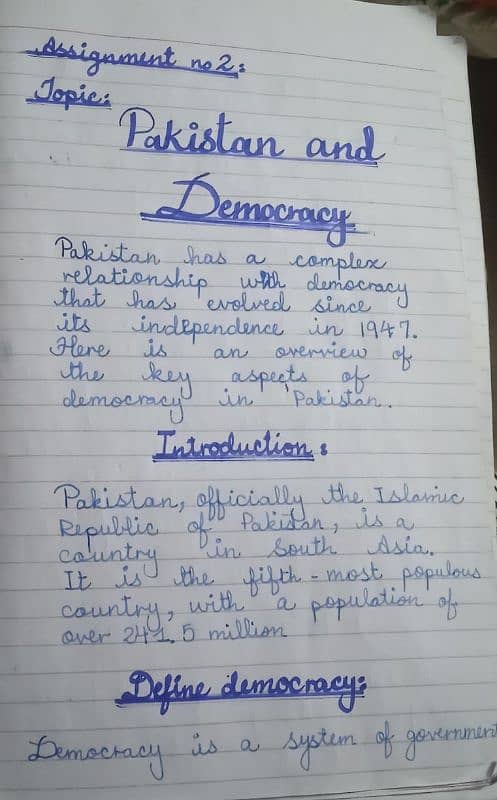 Assignment no 2:
Topic:
Pakistan and
Democracy
Pakistan has a complex
relationship with democracy
that has evolved since
its independence in 1947.
Here is an overview of
the key aspects of
democracy in Pakistan.
Introduction:
Pakistan, officially the Islamic
Republic of Pakistan, is a
country in South Asia.
It is the fifth-most populous
country, with a population of
over 241.5 million
Define democracy:
Democracy is a system of government